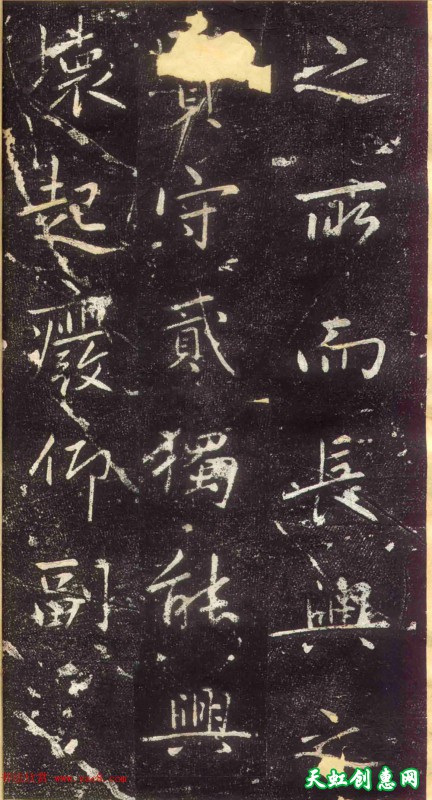 之所而長之
守貳獨能興
壞起癈仰副
天虹创意网